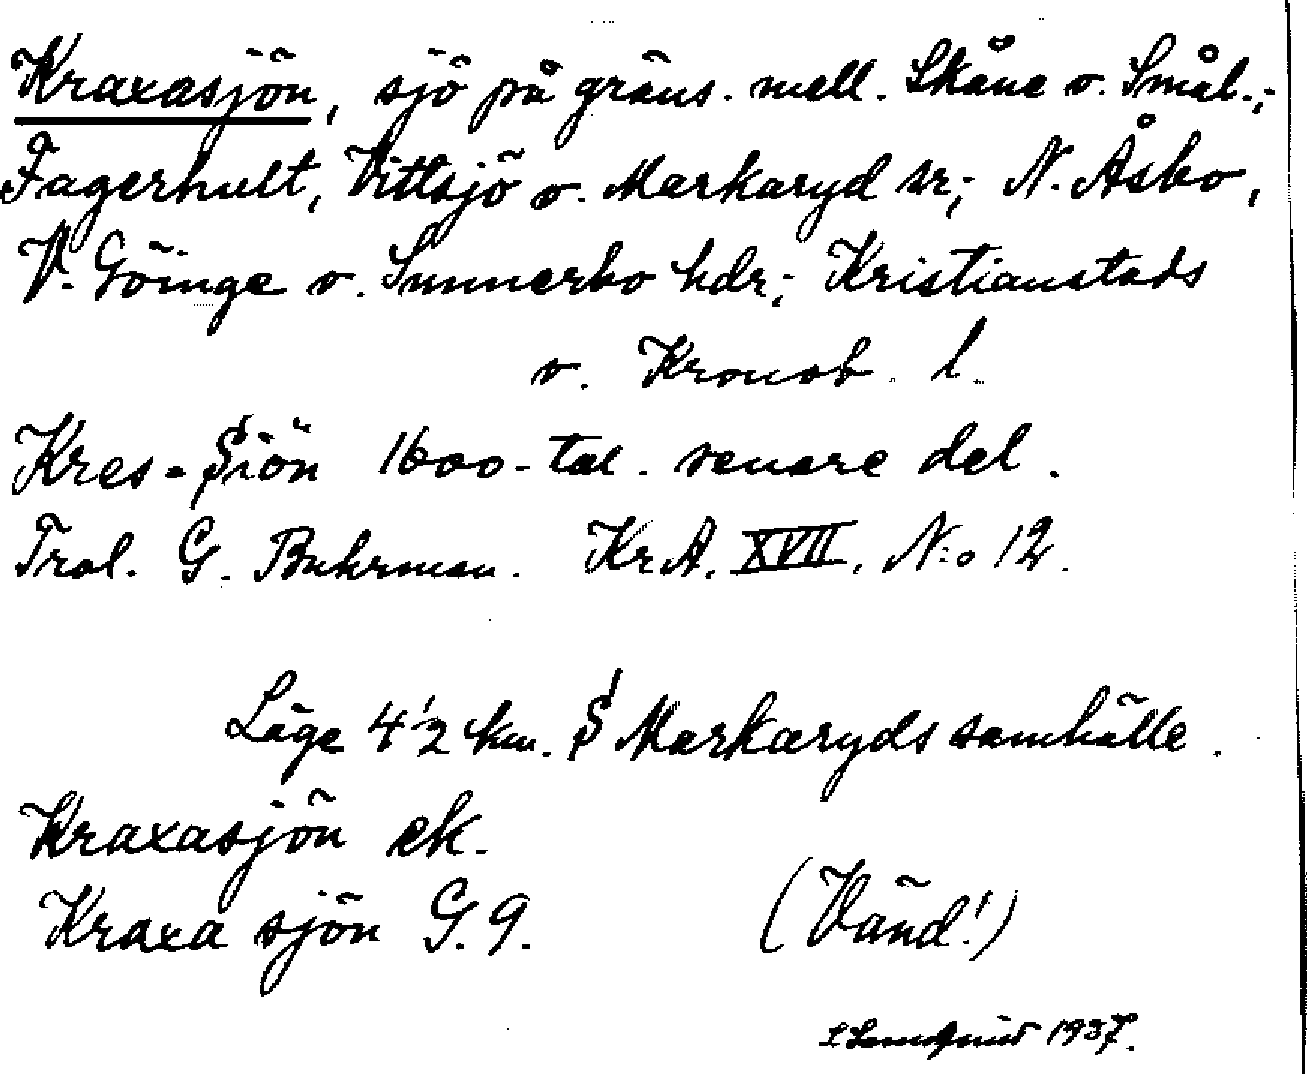 Kraxasjön, sjö på gräns. mell. Skåne o. Smål.;
Fagerhult, Vittsjö o. Markaryd sr; N. Åsbo,
V. Göinge o. Sunnerbo hdr; Kristianstads
o. Kronob. l.
Kres-Siön 1600-tal. senare del.
Trol. G. Buhrman. KrA. XVII, N:o 12.
Läge 4 1/2 km. S Markaryds samhälle.
Kraxasjön ek.
Kraxa sjön G. 9.
(Vänd!)
1937.